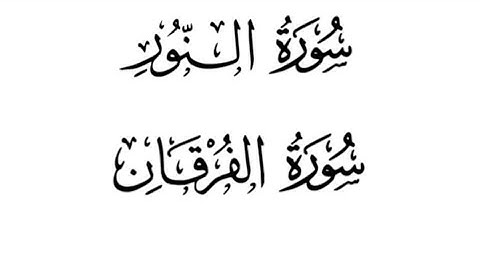 سُورَةُ النُّورِ
سُورَةُ الفُرْقَانِ